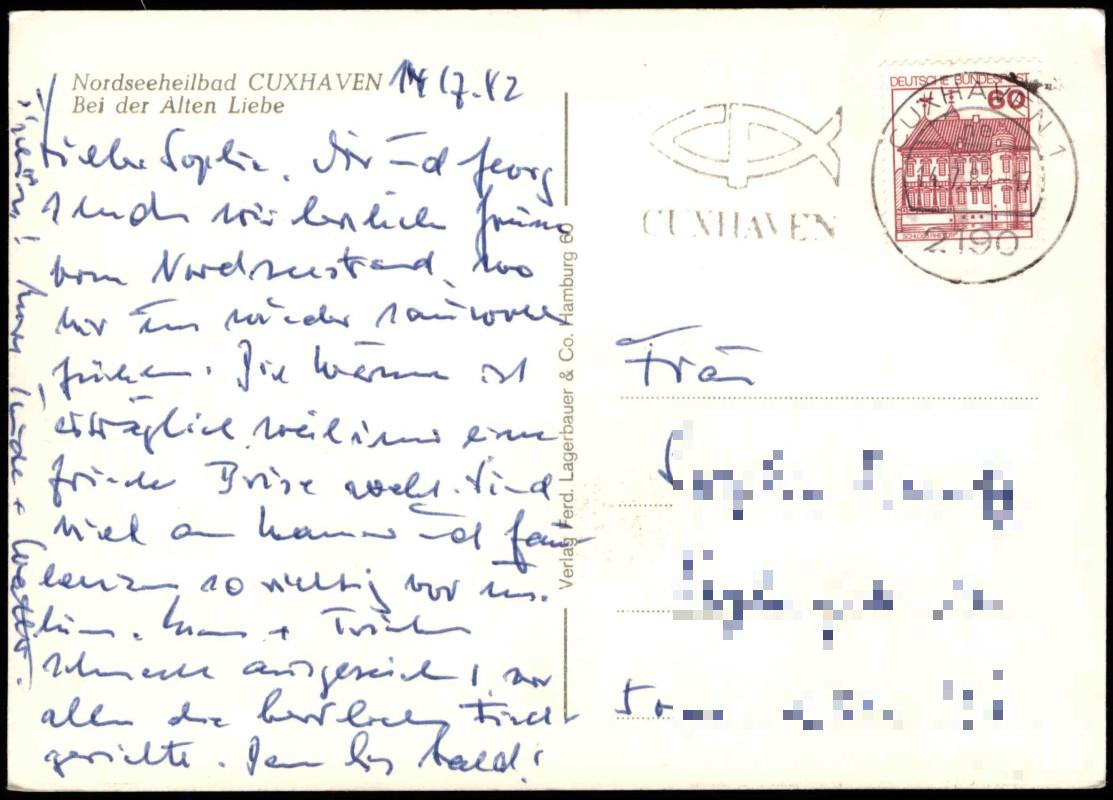 Nordseeheilbad CUXHAVEN 14.7.82
Bei der Alten Liebe
Liebe Sophie, Dir und Georg
senden wir herzliche Grüße
vom Nordseestrand, wo
wir uns wieder sauwohl
fühlen. Die Wärme ist
erträglich, weil immer eine
frische Brise weht. Sind
viel am Wasser und faul-
lenzen so richtig vor uns
hin. Essen + Trinken
schmeckt ausgezeichnet, vor
allem die herrlichen Fisch-
gerichte. Denn bis bald!
Verlag Ferd. Lagerbauer & Co. Hamburg 60
CUXHAVEN
DEUTSCHE BUNDESPOST
60
CUXHAVEN 1
14.7.82-17
2190
Frau